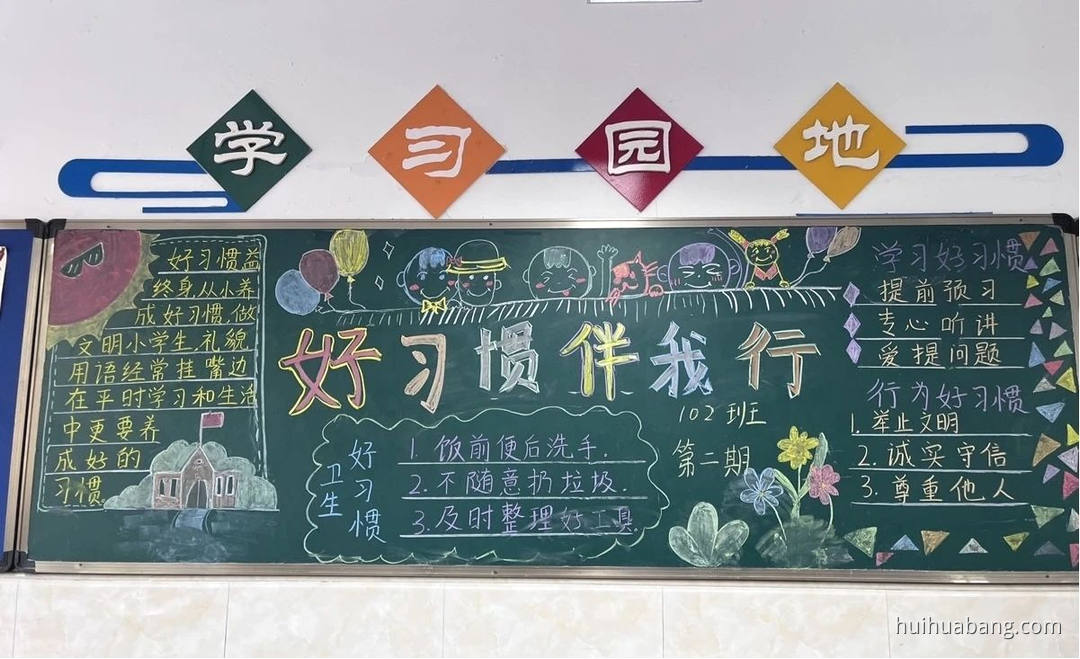 学习园地
好习惯益
终身从小养
成好习惯.做
文明小学生.礼貌
用语经常挂嘴边
在平时学习和生活
中更要养
成好的
习惯
好习惯伴我行
102班
第二期
卫生
好习惯
1.饭前便后洗手.
2.不随意扔垃圾.
3.及时整理好工具
学习好习惯
提前预习
专心听讲
爱提问题
行为好习惯
1.举止文明
2.诚实守信
3.尊重他人
huihuabang.com